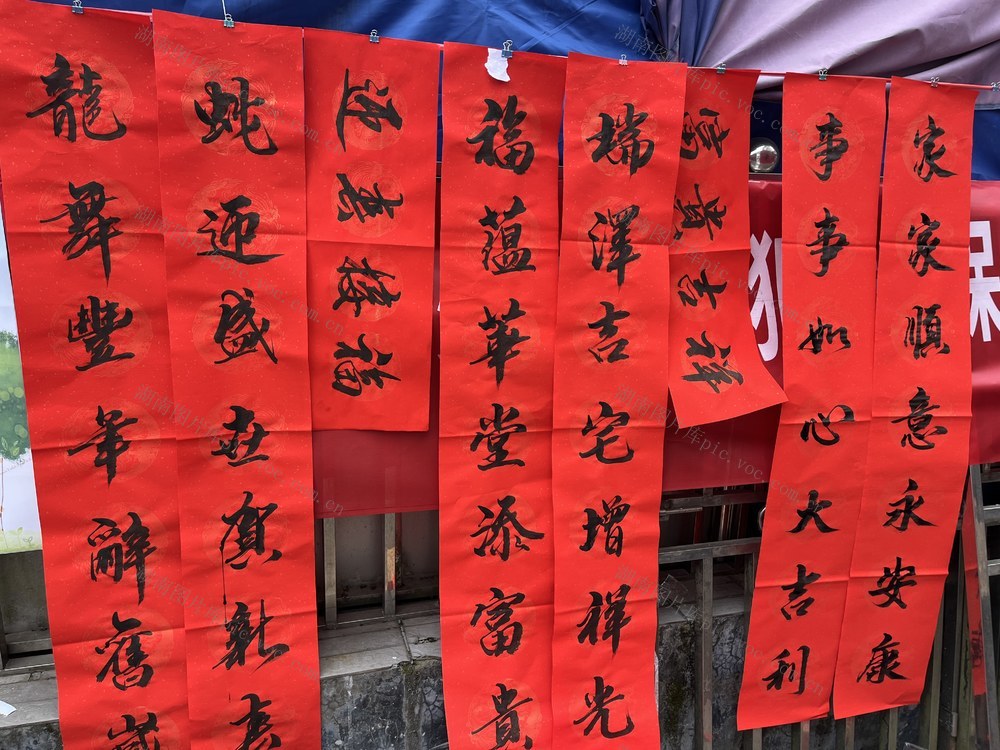 龍舞豐年辭舊歲
蛇迎盛世賀新春
迎春接福
福蘊華堂添富貴
瑞澤吉宅增祥光
富貴吉祥
事事如心大吉利
家家順意永安康
湖南图片库pic.voc.com.cn